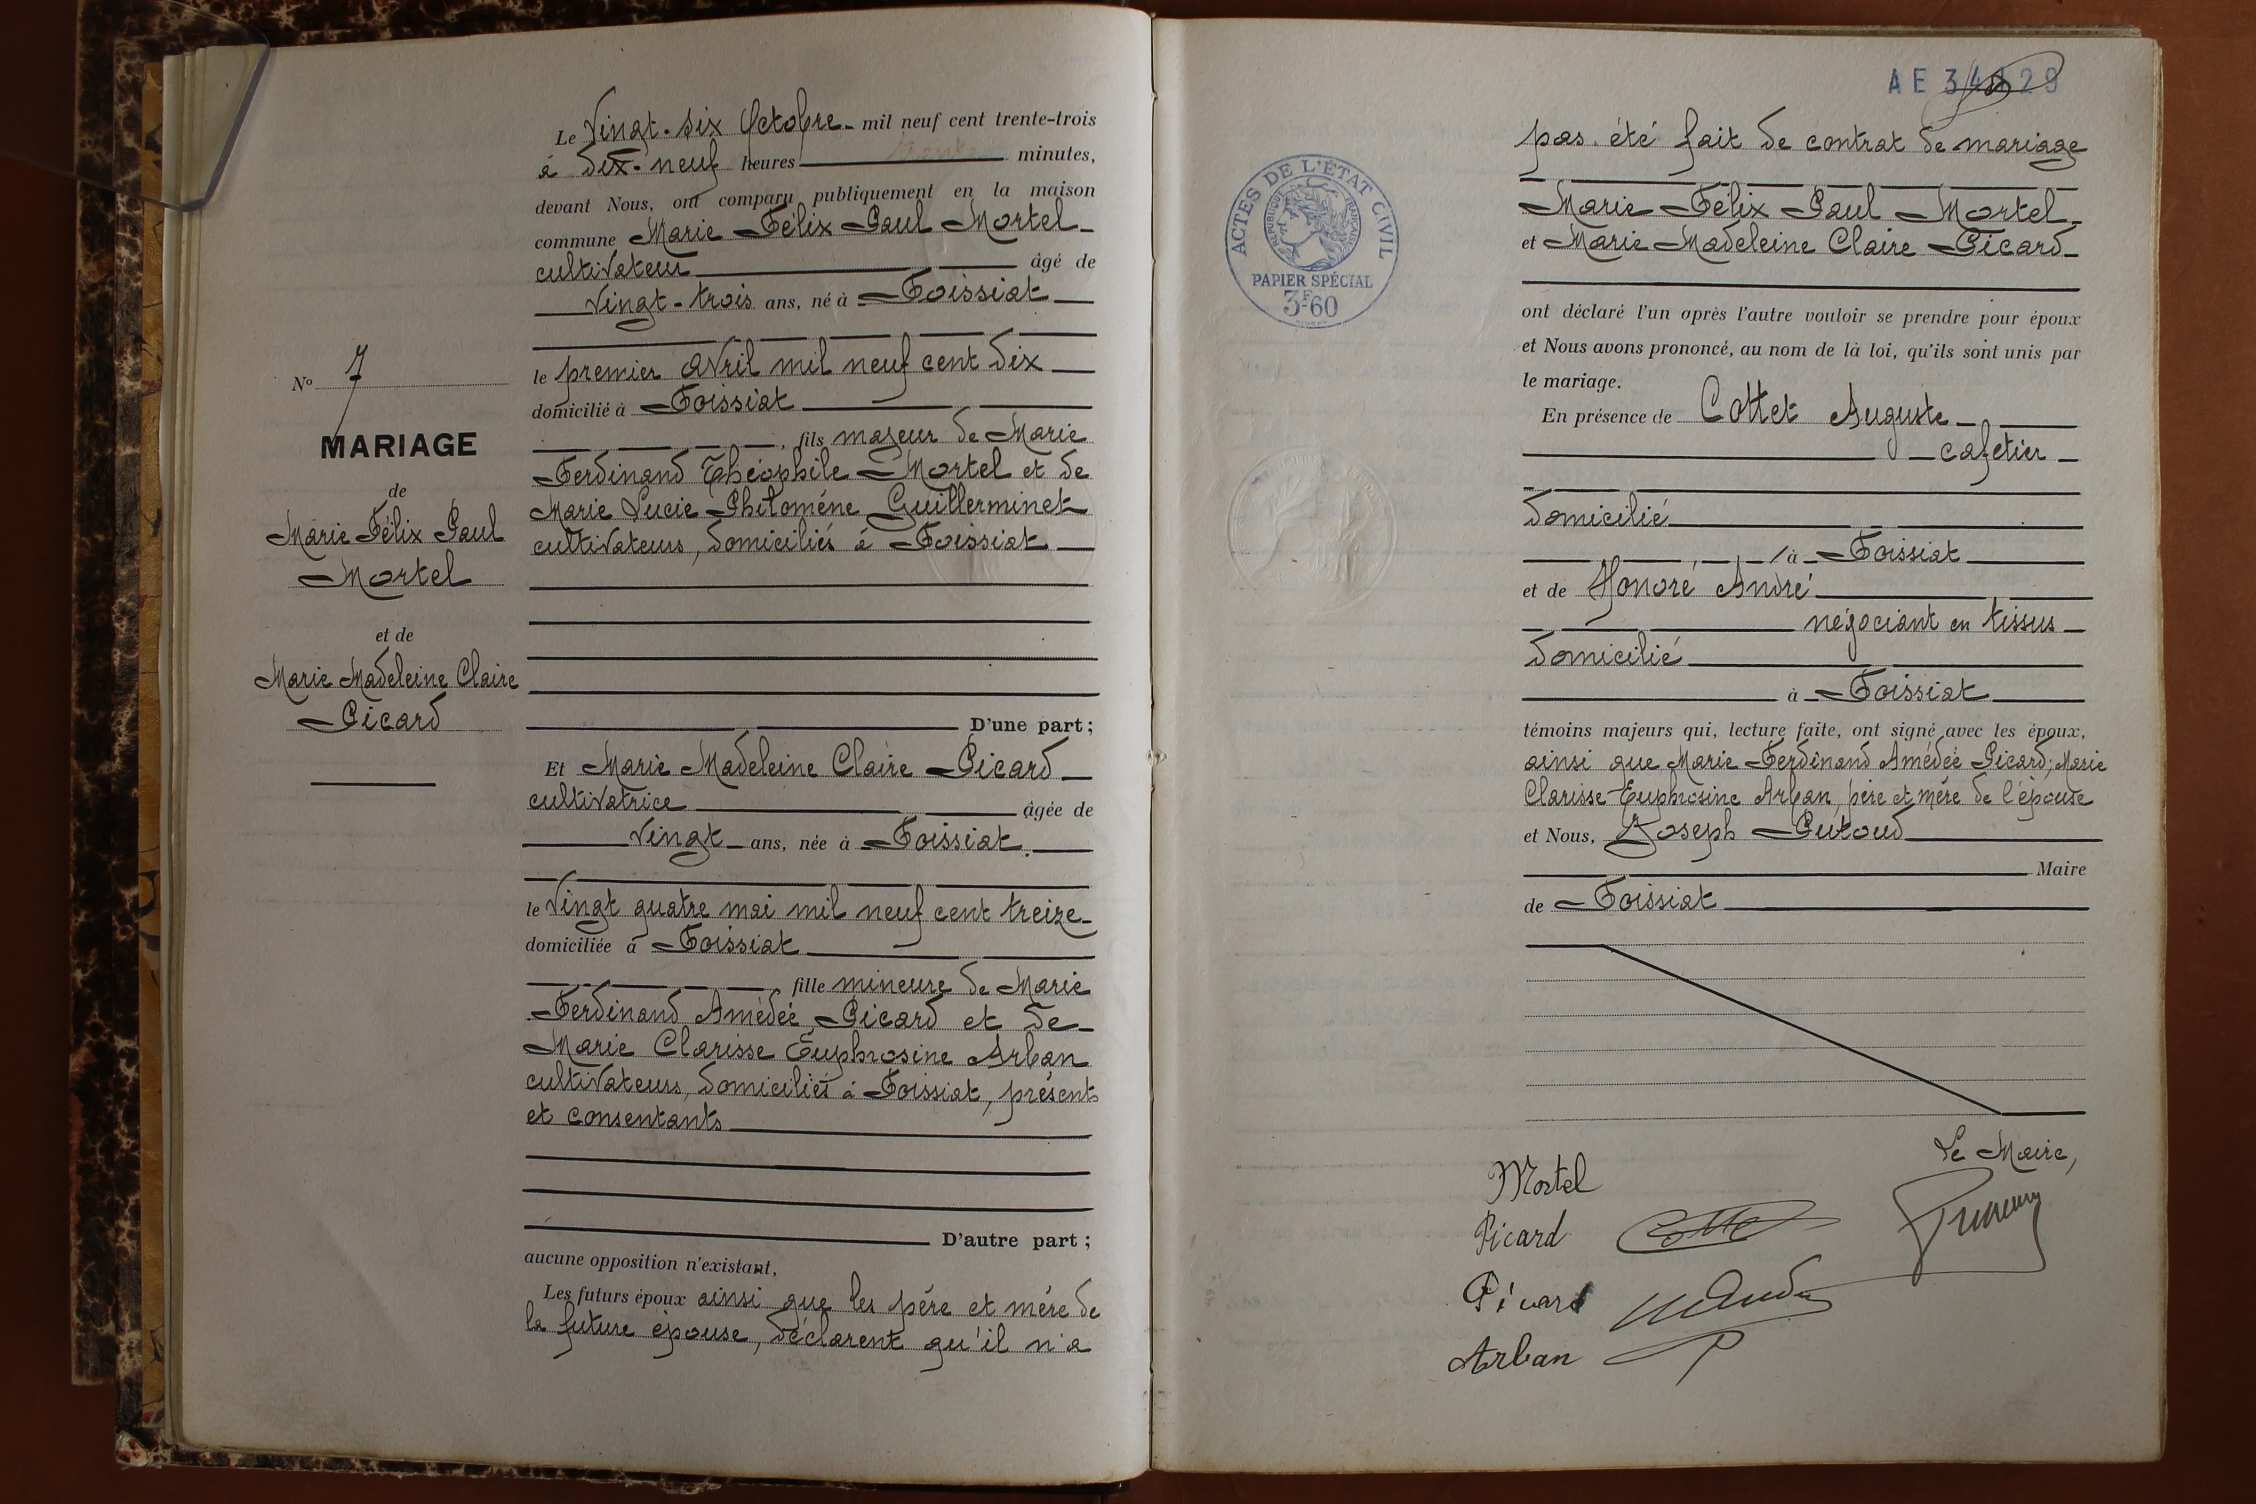 Le Vingt-six Octobre mil neuf cent trente-trois
à dix-neuf heures minutes,
devant Nous, ont comparu publiquement en la maison
commune Marie Félix Paul Mortel
cultivateur âgé de
vingt-trois ans, né à Foissiat
le premier avril mil neuf cent dix
domicilié à Foissiat
, fils majeur de Marie
Ferdinand Théophile Mortel et de
Marie Lucie Philomène Guillerminet
cultivateurs, domiciliés à Foissiat
D'une part;
No 7
MARIAGE
de
Marie Félix Paul
Mortel
et de
Marie Madeleine Claire
Picard
Et Marie Madeleine Claire Picard
cultivatrice âgée de
vingt ans, née à Foissiat
le vingt quatre mai mil neuf cent treize
domiciliée à Foissiat
, fille mineure de Marie
Ferdinand Amédée Picard et de
Marie Clarisse Euphrosine Arban
cultivateurs, domiciliés à Foissiat, présents
et consentants
D'autre part;
aucune opposition n'existant,
Les futurs époux ainsi que les père et mère de
la future épouse, déclarent qu'il n'a
AE
ACTES DE L'ÉTAT CIVIL
RÉPUBLIQUE FRANÇAISE
PAPIER SPÉCIAL
3F60
pas été fait de contrat de mariage
Marie Félix Paul Mortel
et Marie Madeleine Claire Picard
ont déclaré l'un après l'autre vouloir se prendre pour époux
et Nous avons prononcé, au nom de là loi, qu'ils sont unis par
le mariage.
En présence de Cottet Auguste
cafetier
domicilié
à Foissiat
et de Honoré André
négociant en tissus
domicilié
à Foissiat
témoins majeurs qui, lecture faite, ont signé avec les époux,
ainsi que Marie Ferdinand Amédée Picard; Marie
Clarisse Euphrosine Arban, père et mère de l'épouse
et Nous, Joseph Putoud
Maire
de Foissiat
Le Maire,
Mortel
Picard
Picard
Arban